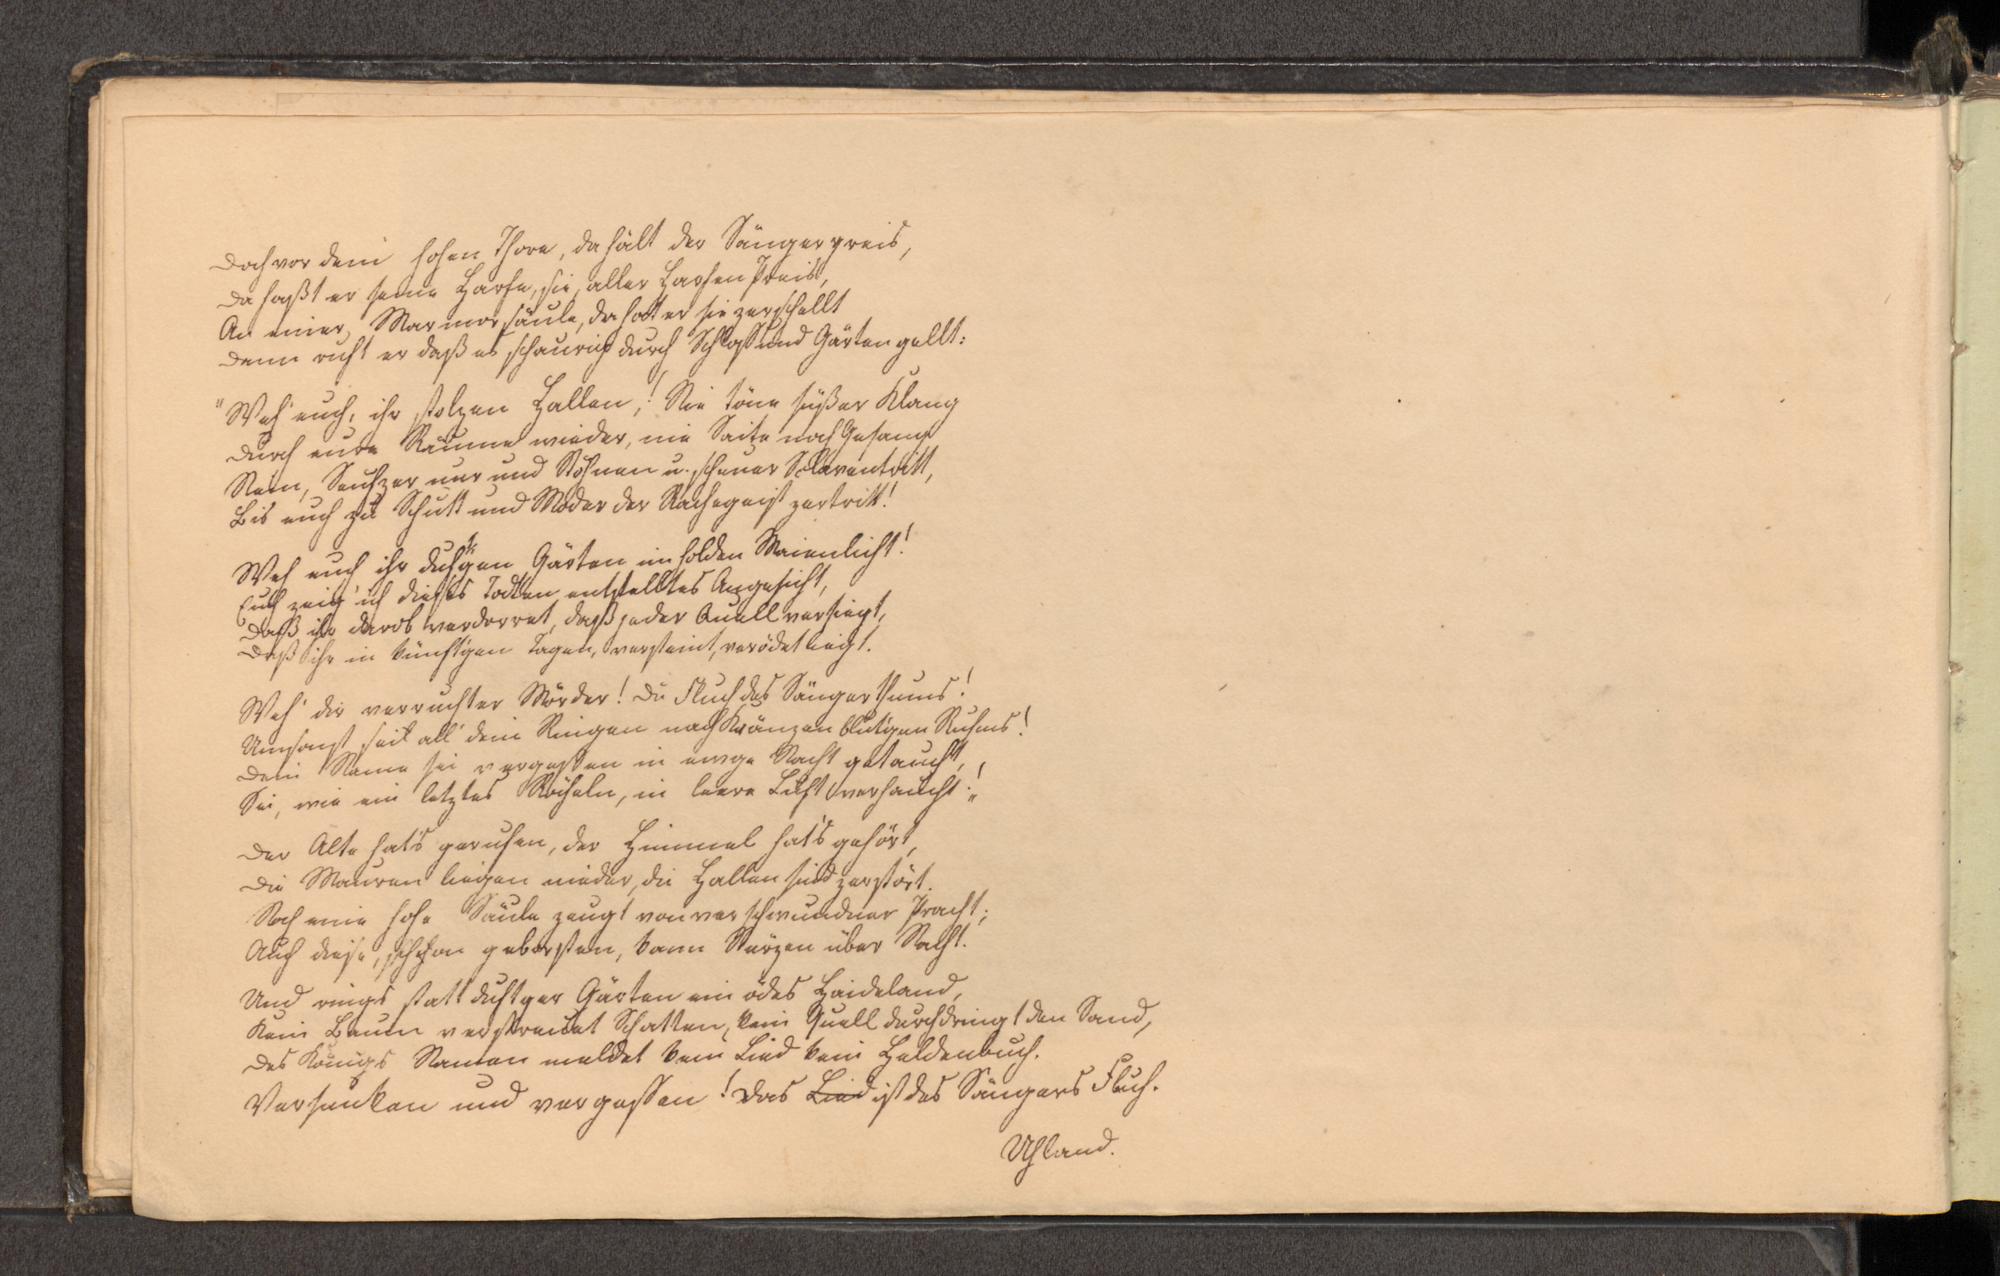 Doch vor dem hohen Thore, da hält der Sängergreis,
Da faßt er seine Harfe, sie, aller Harfen Preis,
An einer Marmorsäule, da hat er sie zerschellt
Dann ruft er daß es schaurig durch Schloß und Gärten gellt:
"Weh' euch, ihr stolzen Hallen,! Nie töne süßer Klang
Durch eure Räume wieder, nie Saite noch Gesang
Nein, Seufzer nur und Stöhnen u. scheuer Sclavenschritt,
Bis euch zu Schutt und Moder der Rachegeist zertritt!
Weh euch ihr duft'gen Gärten im holden Maienlicht!
Euch zeig' ich dieses Todten entstelltes Angesicht,
Daß ihr darob verdorret, daß jeder Quell versiegt,
Daß ihr in künft'gen Tagen, versteint, verödet liegt.
Weh' dir verruchter Mörder! Du Fluch des Sängerthums!
Umsonst sei all' dein Ringen nach Kränzen blutigen Ruhms!
Dein Name sei vergessen in ewge Nacht getaucht,
Sei, wie ein letztes Röcheln, in leere Luft verhaucht!"
Der Alte hat's gerufen, der Himmel hat's gehört,
Die Mauern liegen nieder, die Hallen sind zerstört.
Noch eine hohe Säule zeugt von verschwundner Pracht;
Auch diese, schon geborsten, kann stürzen über Nacht.
Und rings statt duftger Gärten ein ödes Haideland,
Kein Baum verstreuet Schatten, kein Quell durchdringt den Sand,
Des Königs Namen meldet kein Lied kein Heldenbuch.
Versunken und vergessen! Das Lied ist des Sängers Fluch.
Uhland.